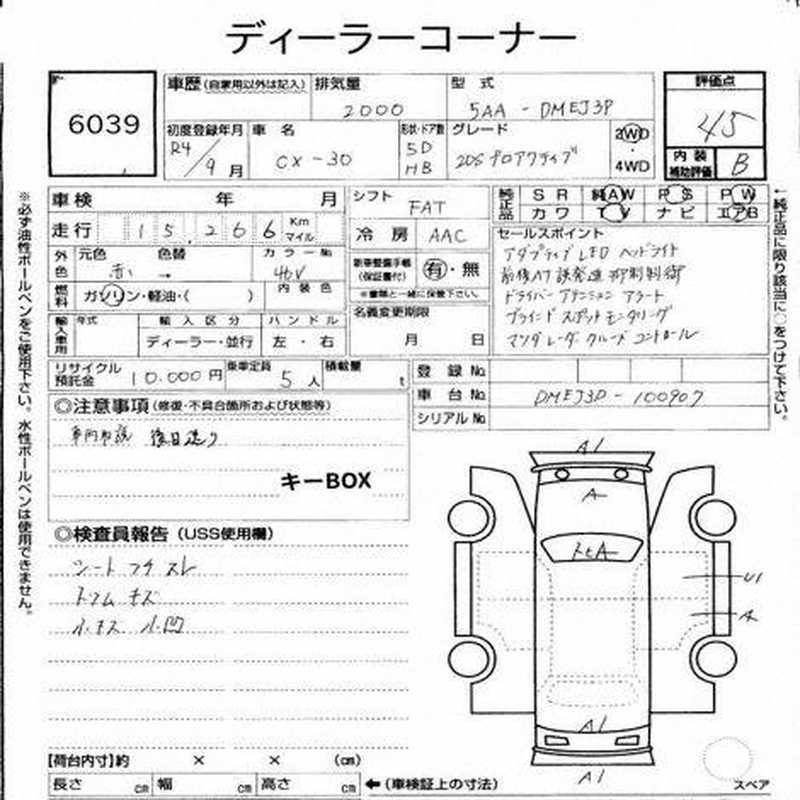 ディーラーコーナー
6039
車歴(自家用以外は記入) 排気量 型式 評価点
2000 5AA - DMEJ3P 4.5
初度登録年月 車名 形状・ドア数 グレード 2WD
R4/9月 CX-30 5D HB 20S プロアクティブ 4WD
内装補助評価 B
車検 年 月 シフト FAT
純正品 SR 純AW PS PW
カワ TV ナビ エアB
走行 15,266 Km マイル 冷房 AAC
セールスポイント
アダプティブ LED ヘッドライト
前後AT誤発進抑制制御
ドライバーアテンションアラート
ブラインドスポットモニタリング
マツダレーダークルーズコントロール
外色 元色 色替 カラーNo
赤 → 46V
新車整備手帳(保証書付) 有・無
※書類と一緒に保管下さい。
燃料 ガソリン・軽油・( ) 内装色
名義変更期限
月 日
輸入車用 年式 輸入区分 ハンドル
ディーラー・並行 左・右
リサイクル預託金 10.000円 乗車定員 5人 積載量 t
登録No
車台No DMEJ3P - 100907
シリアルNo
◎注意事項(修復・不具合箇所および状態等)
後日送り
キーBOX
◎検査員報告(USS使用欄)
シートフチスレ
トリムキズ
小キズ 小凹
A1
A
U1
A
A1
A1
【荷台内寸】約 × × (cm)
長さ cm 幅 cm 高さ cm ←(車検証上の寸法)
スペア
※必ず油性ボールペンをご使用下さい。水性ボールペンは使用できません。
←純正品に限り該当に○をつけて下さい。